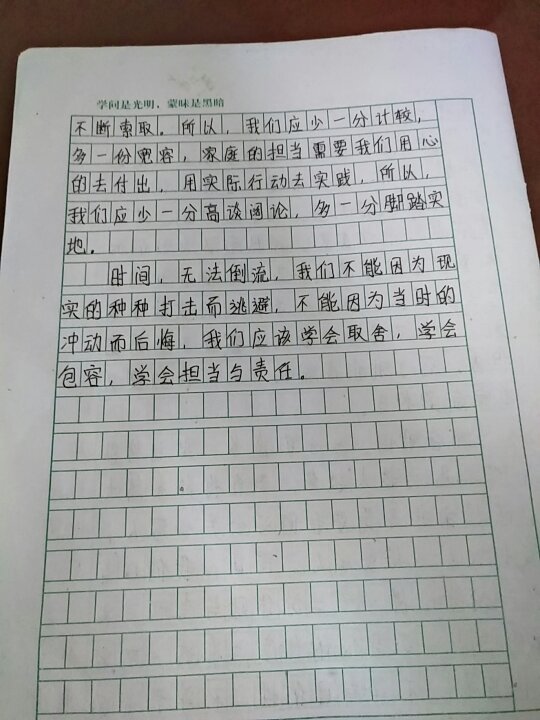 学问是光明，蒙昧是黑暗
不断索取。所以，我们应少一分计较，
多一份宽容，家庭的担当需要我们用心
的去付出，用实际行动去实践，所以，
我们应少一分高谈阔论，多一分脚踏实
地。
时间，无法倒流，我们不能因为现
实的种种打击而逃避，不能因为当时的
冲动而后悔，我们应该学会取舍，学会
包容，学会担当与责任。